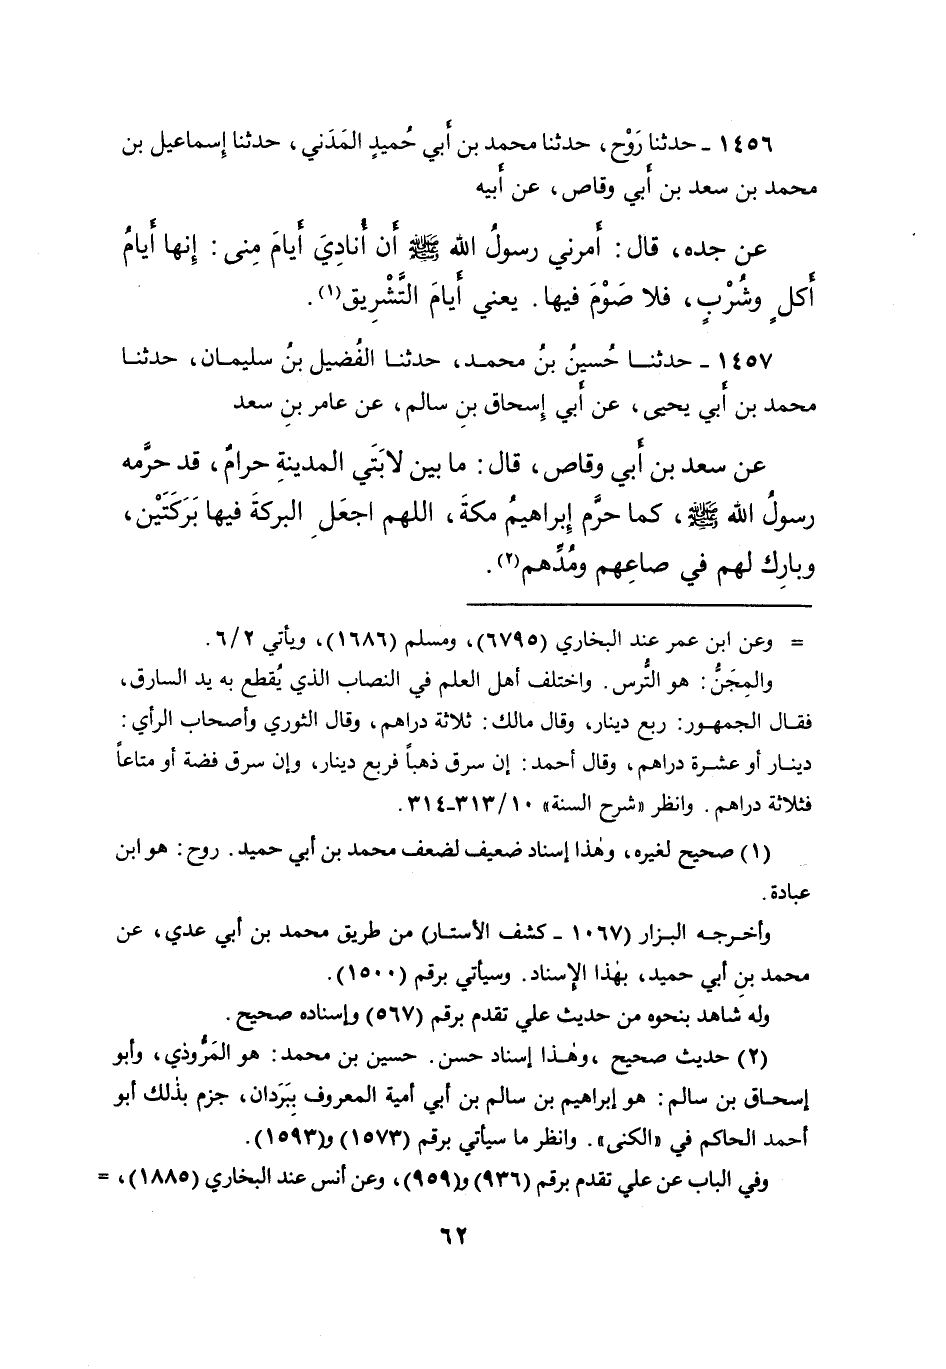 ١٤٥٦ ـ حدثنا رَوْح، حدثنا محمد بن أَبي حُميدٍ المَدَني، حدثنا إسماعيل بن
محمد بن سعد بن أَبي وقاص، عن أَبيه
عن جده، قال: أَمرني رسولُ الله ﷺ أَن أُنادِيَ أَيامَ مِنى: إنها أَيامُ
أَكلٍ وشُرْبٍ، فلا صَوْمَ فيها. يعني أَيامَ التَّشْرِيق(١).
١٤٥٧ ـ حدثنا حُسينُ بنُ محمد، حدثنا الفُضيل بنُ سليمان، حدثنا
محمد بن أَبي يحيى، عن أَبي إسحاق بنِ سالم، عن عامر بنِ سعد
عن سعد بن أَبي وقاص، قال: ما بين لابَتَي المدينةِ حرامٌ، قد حرَّمه
رسولُ الله ﷺ، كما حرَّم إبراهيمُ مكةَ، اللهم اجعَلِ البركةَ فيها بَرَكَتَيْن،
وبارِك لهم في صاعِهم ومُدِّهم(٢).
= وعن ابن عمر عند البخاري (٦٧٩٥)، ومسلم (١٦٨٦)، ويأتي ٦/٢.
والمِجَنُّ: هو التُّرس. واختلف أهل العلم في النصاب الذي يُقطع به يد السارق،
فقال الجمهور: ربع دينار، وقال مالك: ثلاثة دراهم، وقال الثوري وأصحاب الرأي:
دينار أو عشرة دراهم، وقال أحمد: إن سرق ذهباً فربع دينار، وإن سرق فضة أو متاعاً
فثلاثة دراهم. وانظر «شرح السنة» ٣١٣/١٠ـ٣١٤.
(١) صحيح لغيره، وهٰذا إسناد ضعيف لضعف محمد بن أبي حميد. روح: هو ابن
عبادة.
وأخرجه البزار (١٠٦٧ ـ كشف الأستار) من طريق محمد بن أبي عدي، عن
محمد بنِ أبي حميد، بهٰذا الإِسناد. وسيأتي برقم (١٥٠٠).
وله شاهد بنحوه من حديث علي تقدم برقم (٥٦٧) وإسناده صحيح.
(٢) حديث صحيح، وهٰذا إسناد حسن. حسين بن محمد: هو المَرُّوذي، وأبو
إسحاق بن سالم: هو إبراهيم بن سالم بن أبي أمية المعروف بِبَرَدان، جزم بذٰلك أبو
أحمد الحاكم في «الكنى». وانظر ما سيأتي برقم (١٥٧٣) و(١٥٩٣).
وفي الباب عن علي تقدم برقم (٩٣٦) و(٩٥٩)، وعن أنس عند البخاري (١٨٨٥)، =
٦٢